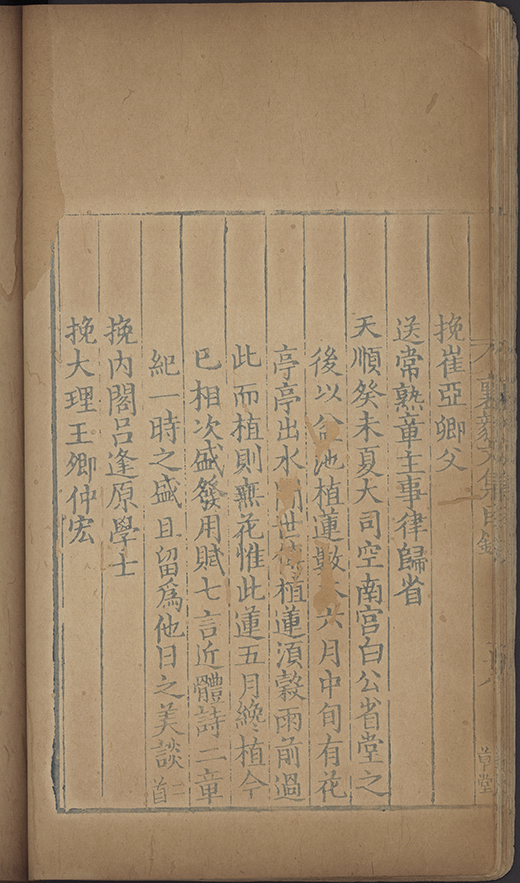 襄毅文集目錄
草堂
挽崔亞卿父
送常熟童主事律歸省
天順癸未夏大司空南宮白公省堂之
後以盆池植蓮數本六月中旬有花
亭亭出水聞世傳植蓮湏穀雨前過
此而植則無花惟此蓮五月纔植今
已相次盛發用賦七言近體詩二章
紀一時之盛且留爲他日之美談二首
挽內閣呂逢原學士
挽大理王卿仲宏